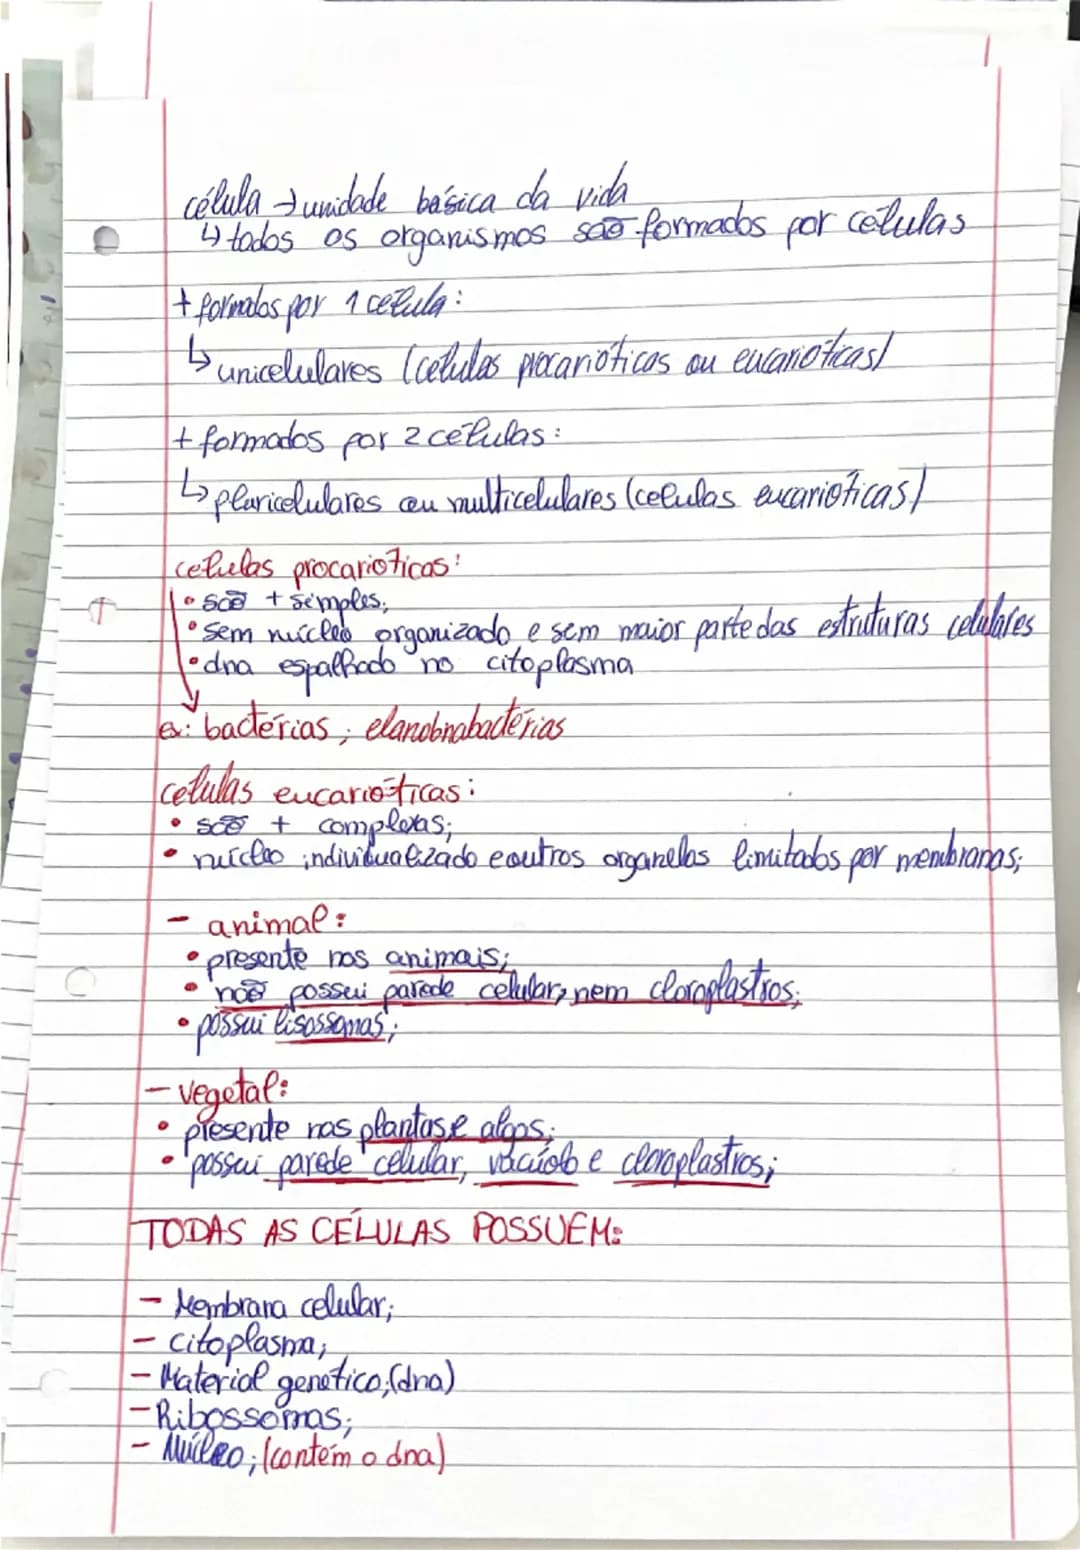 célula → unidade básica da vida
↳ todos os organismos são formados por células
+ formados por 1 célula:
↳ unicelulares (células procarióticas ou eucarióticas)
+ formados por 2 células:
↳ pluricelulares ou multicelulares (celulas eucarióticas)
celulas procarióticas:
• são + simples;
• sem núcleo organizado e sem maior parte das estruturas celulares
• dna espalhado no citoplasma
ex: bactérias ; elanobnabactérias
celulas eucarióticas:
• são + complexas;
• núcleo individualizado e outros organelos limitados por membranas;
- animal:
• presente nos animais;
• não possui parede celular, nem cloroplastros;
• possui lisossomas;
- vegetal:
• presente nas plantas e algas;
• possui parede celular, vacúolo e cloroplastros;
TODAS AS CÉLULAS POSSUEM:
- Membrana celular;
- citoplasma;
- Material genético;(dna)
- Ribossomas;
- Núcleo; (contém o dna)